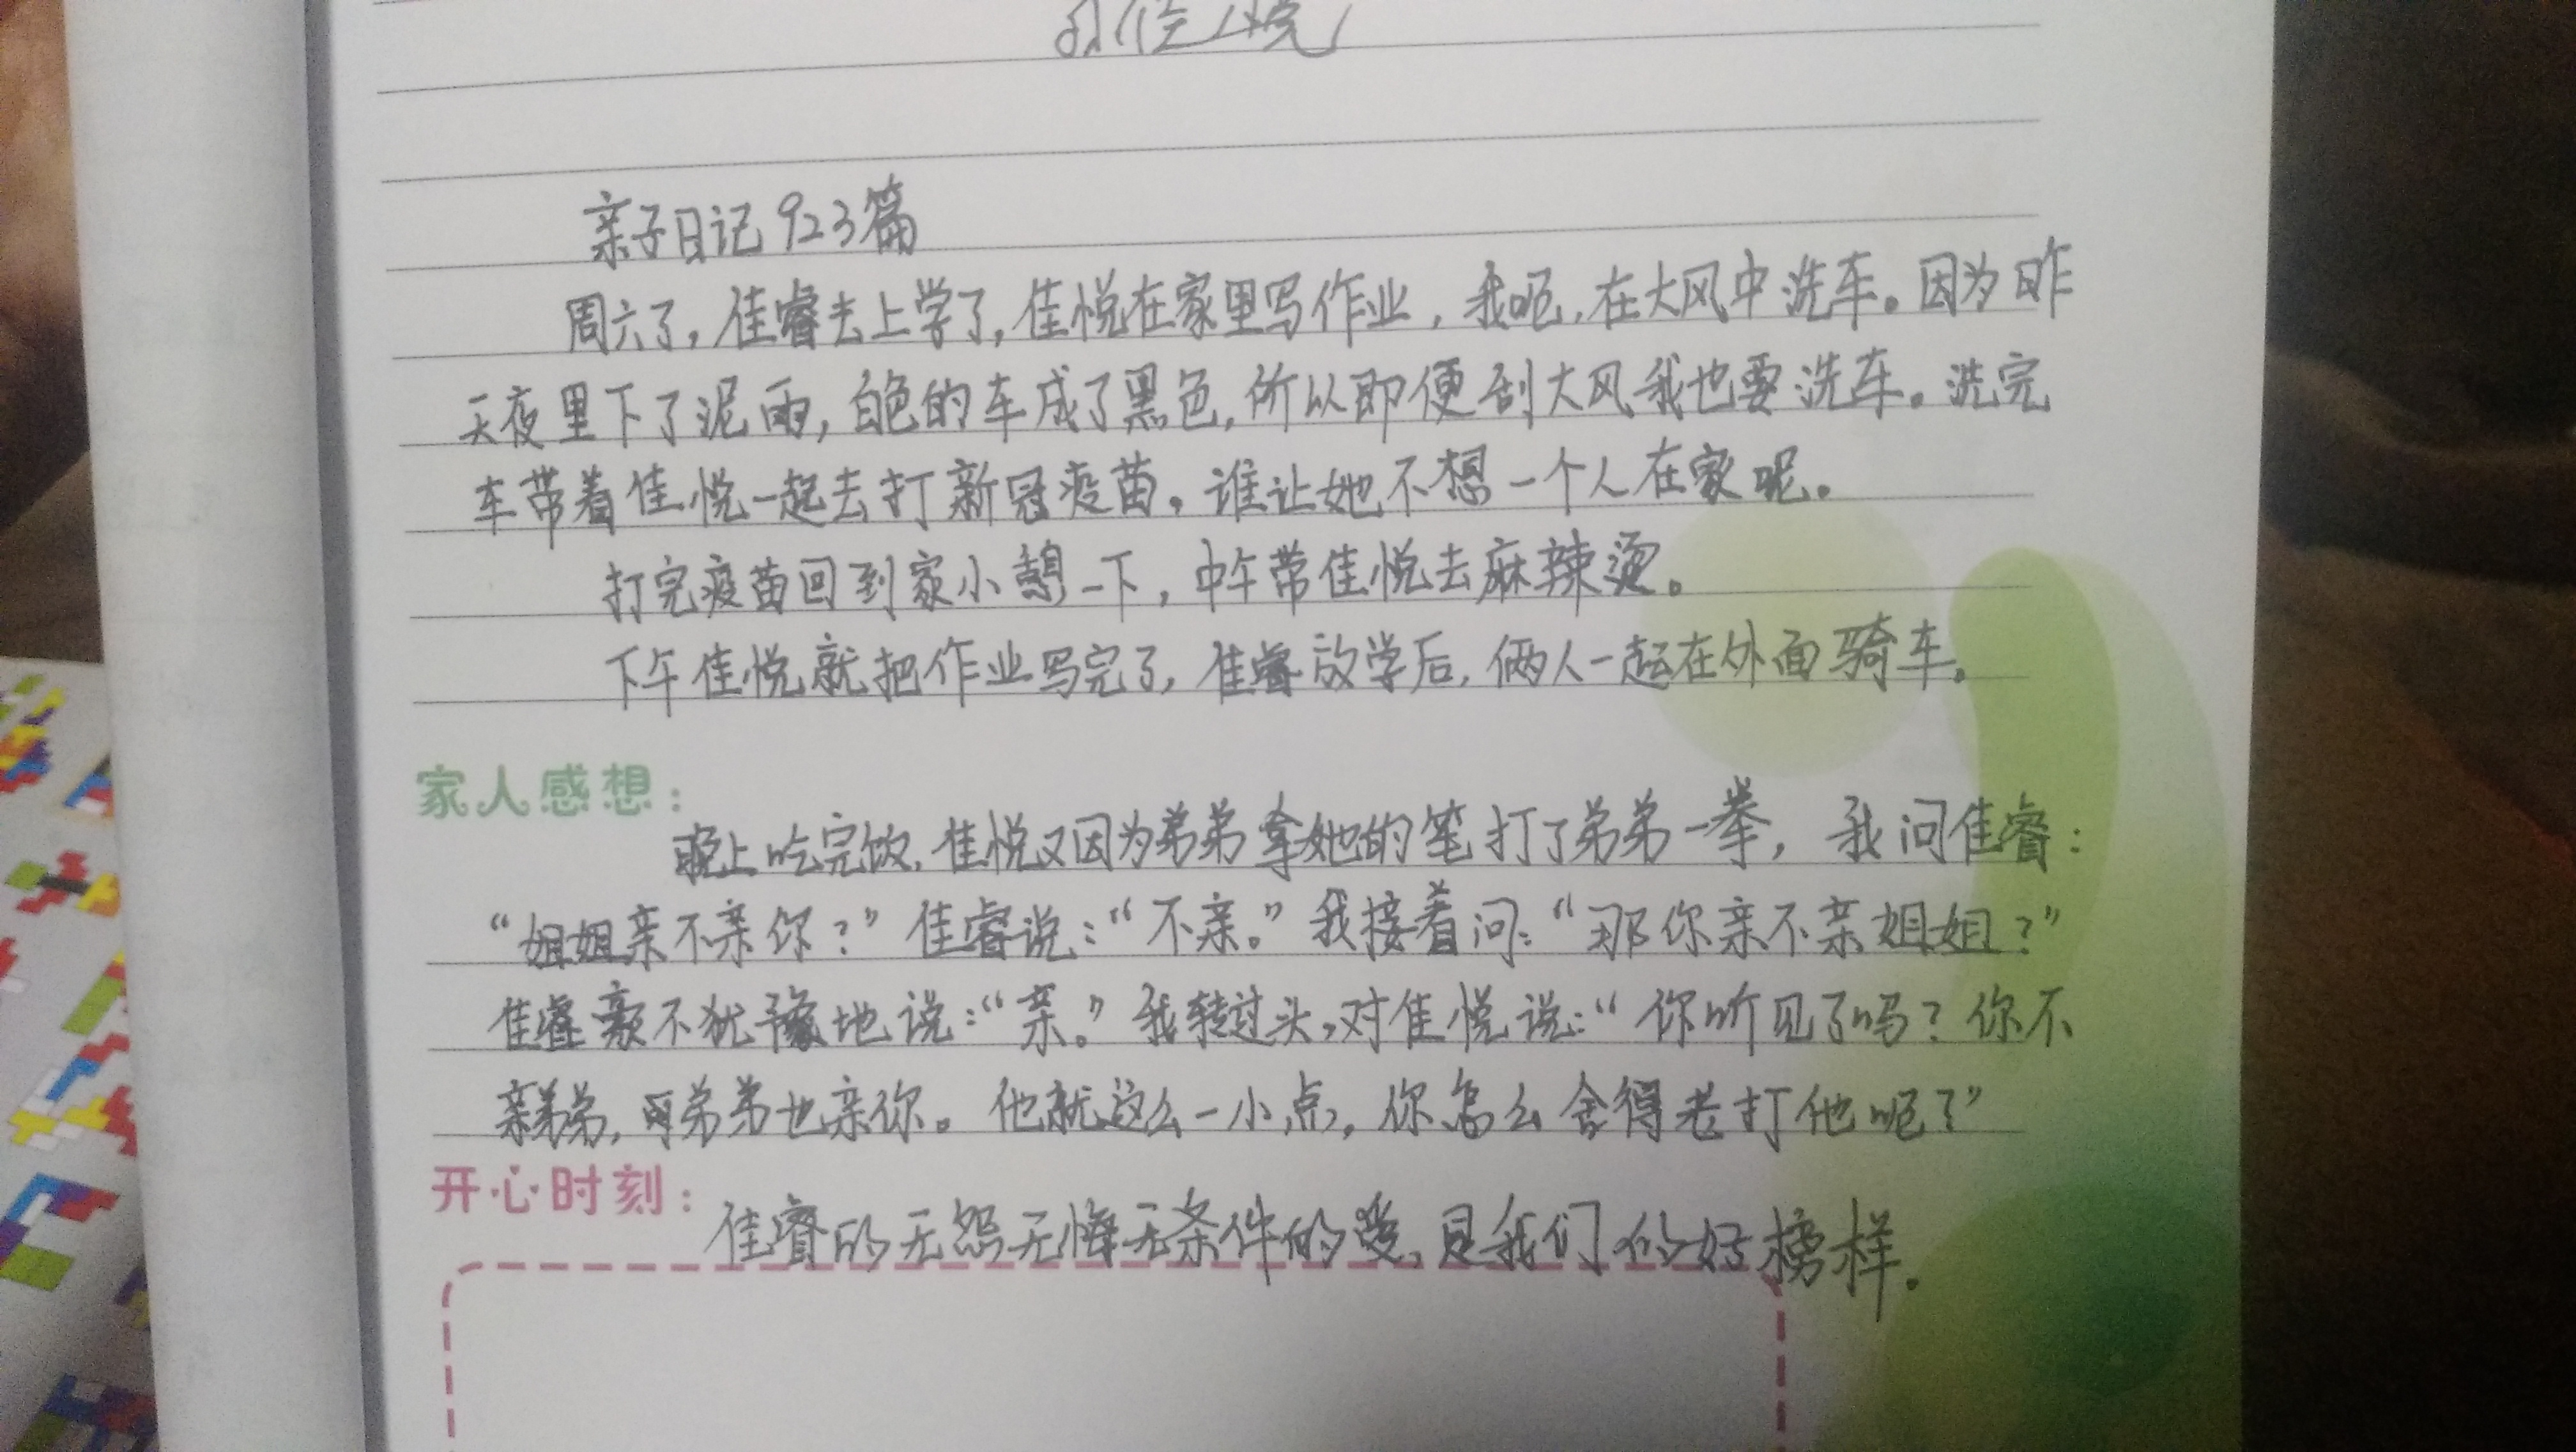 佳悦
亲子日记923篇
周六了,佳睿去上学了,佳悦在家里写作业,我呢,在大风中洗车。因为昨
天夜里下了泥雨,白色的车成了黑色,所以即便刮大风我也要洗车。洗完
车带着佳悦一起去打新冠疫苗。谁让她不想一个人在家呢。
打完疫苗回到家小憩一下,中午带佳悦去麻辣烫。
下午佳悦就把作业写完了,佳睿放学后,俩人一起在外面骑车。
家人感想:
晚上吃完饭,佳悦又因为弟弟拿她的笔打了弟弟一拳,我问佳睿:
“姐姐亲不亲你?”佳睿说:“不亲。”我接着问:“那你亲不亲姐姐?”
佳睿毫不犹豫地说:“亲。”我转过头,对佳悦说:“你听见了吗?你不
亲弟弟,可弟弟也亲你。他就这么一小点,你怎么舍得老打他呢?”
开心时刻:
佳睿的无怨无悔无条件的爱,是我们的好榜样。